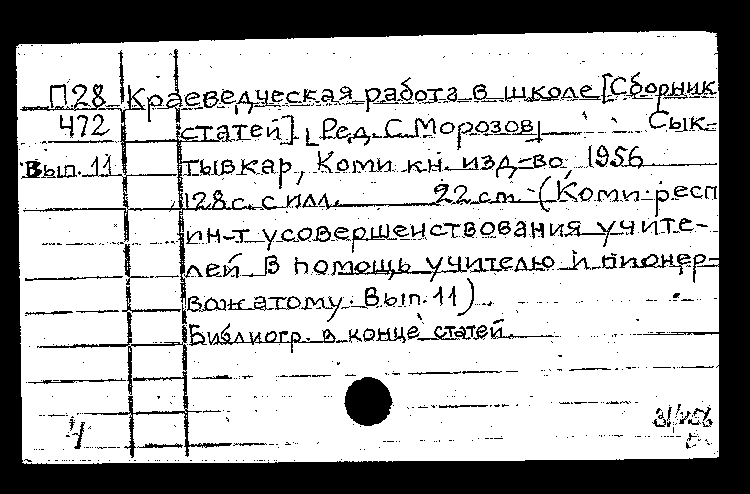 П28 Краеведческая работа в школе [Сборник
472 статей]. [Ред. С. Морозов] Сык-
Вып. 11 тывкар, Коми кн. изд-во, 1956
128 с. с илл. 22 см. (Коми респ
ин-т усовершенствования учите-
лей. В помощь учителю и пионер-
вожатому. Вып. 11).
Библиогр. в конце статей.
4